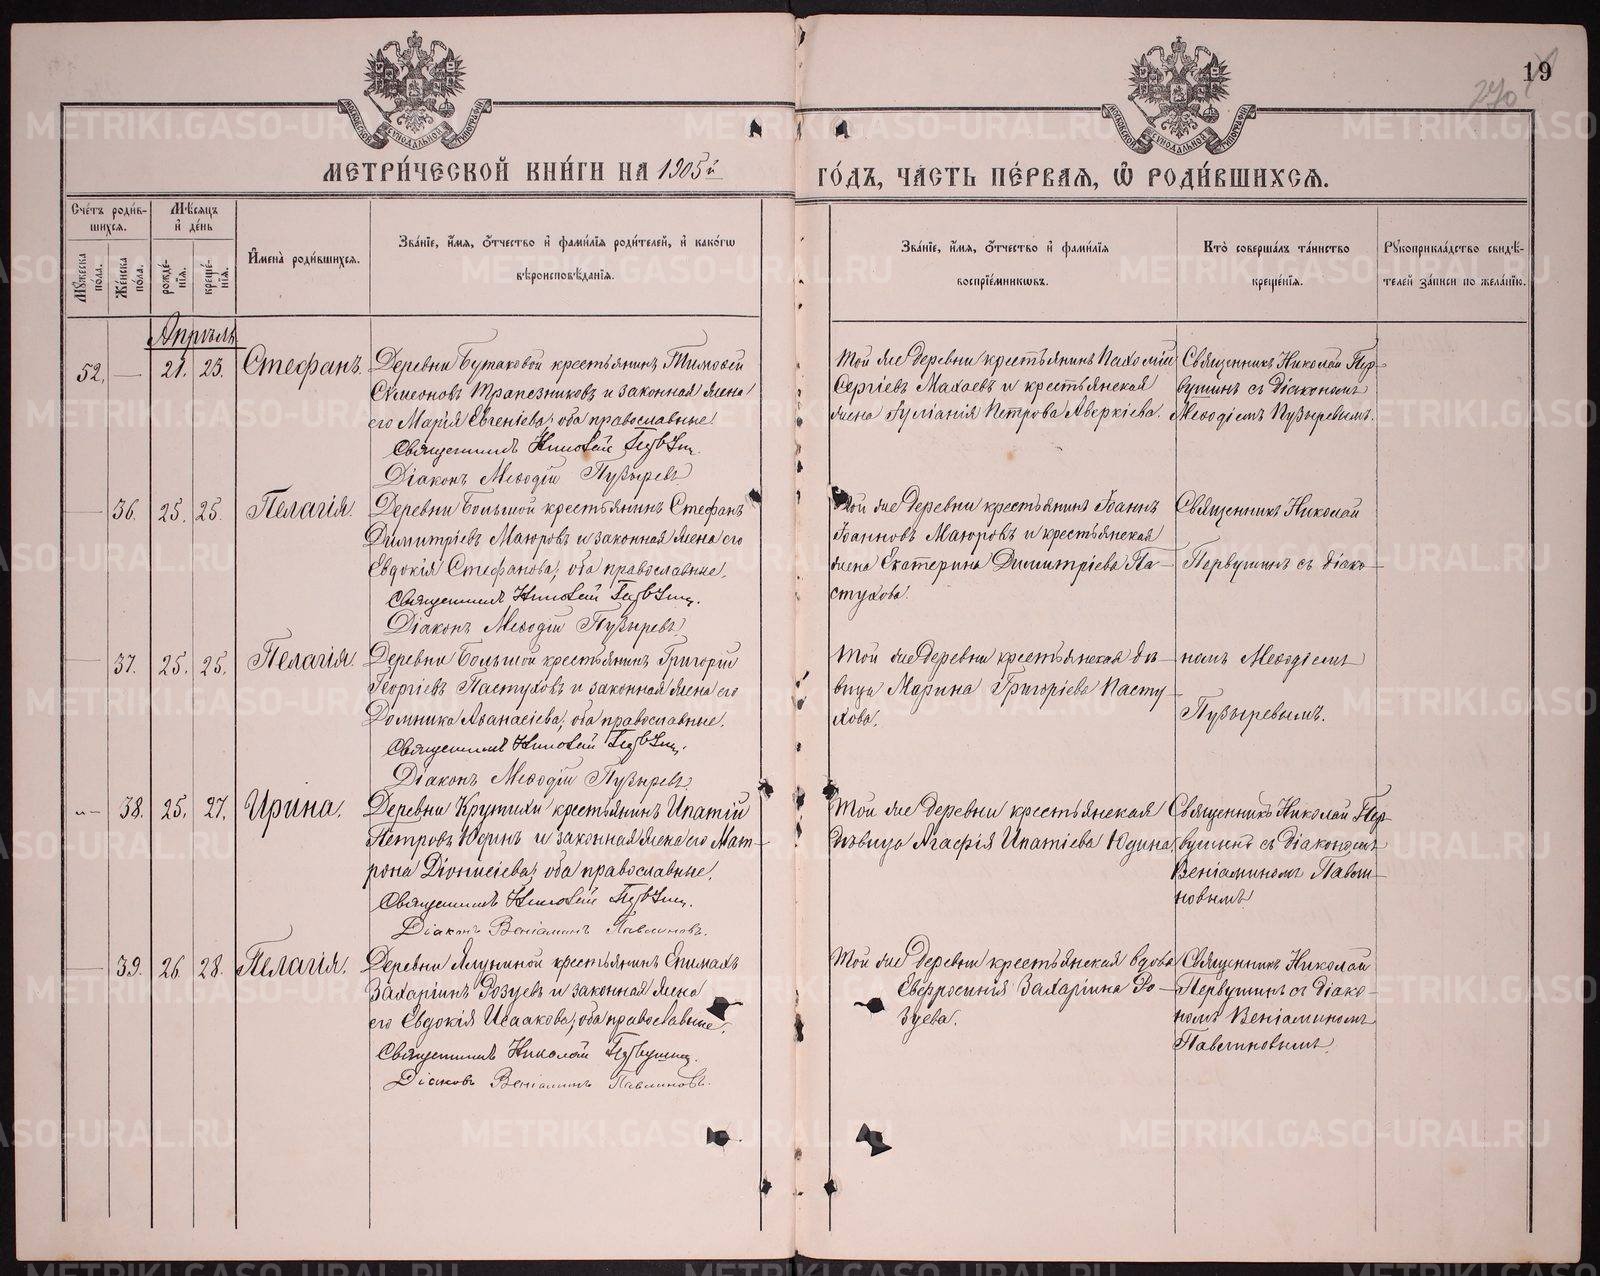 19
270
МОСКОВСКОЙ СѴНОДАЛЬНОЙ ТИПОГРАФІИ
МОСКОВСКОЙ СѴНОДАЛЬНОЙ ТИПОГРАФІИ
МЕТРИ́ЧЕСКОЙ КНИ́ГИ НА 1905й
ГО́ДЪ, ЧА́СТЬ ПЕ́РВАЯ, Ѡ РОДИ́ВШИХСЯ.
Сче́тъ роди́в-
шихся.
Мѣ́сяцъ
и де́нь
Мꙋ́жеска
по́ла.
Же́нска
по́ла.
рожде́-
нія.
креще́-
нія.
Имена̀ роди́вшихся.
Зва́ніе, и́мя, о́тчество и фами́лія роди́телей, и како́гѡ
вѣроисповѣ́данія.
Зва́ніе, и́мя, о́тчество и фами́лія
воспріе́мникѡвъ.
Кто̀ соверша́лъ та́инство
креще́нія.
Рꙋкоприкла́дство свидѣ́-
телей за́писи по жела́нію.
Апрѣль
52. — 21. 23. Стефанъ.
Деревни Бутаковой крестьянинъ Тимоѳей
Симеоновъ Трапезниковъ и законная жена
его Марія Евгеніева; оба православные.
Священникъ Николай Первушинъ.
Діаконъ Меѳодій Пузыревъ.
Той же деревни крестьянинъ Пахомій
Сергіевъ Махаевъ и крестьянская
жена Іуліанія Петрова Аверкіева.
Священникъ Николай Пер-
вушинъ съ діакономъ
Меѳодіемъ Пузыревымъ.
— 36. 25. 25. Пелагія.
Деревни Большой крестьянинъ Стефанъ
Димитріевъ Маюровъ и законная жена его
Евдокія Стефанова; оба православные.
Священникъ Николай Первушинъ.
Діаконъ Меѳодій Пузыревъ.
Той же деревни крестьянинъ Іоаннъ
Іоанновъ Маюровъ и крестьянская
жена Екатерина Димитріева Па-
стухова.
Священникъ Николай
Первушинъ съ діако-
— 37. 25. 25. Пелагія.
Деревни Большой крестьянинъ Григорій
Георгіевъ Пастуховъ и законная жена его
Домника Аѳанасіева; оба православные.
Священникъ Николай Первушинъ.
Діаконъ Меѳодій Пузыревъ.
Той же деревни крестьянская дѣ-
вица Марина Григоріева Пасту-
хова.
номъ Меѳодіемъ
Пузыревымъ.
— 38. 25. 27. Ирина.
Деревни Крутихи крестьянинъ Ипатій
Петровъ Юдинъ и законная жена его Мат-
рона Діонисіева; оба православные.
Священникъ Николай Первушинъ.
Діаконъ Веніаминъ Павлиновъ.
Той же деревни крестьянская
дѣвица Агафія Ипатіева Юдина.
Священникъ Николай Пер-
вушинъ съ діакономъ
Веніаминомъ Павли-
новымъ.
— 39. 26. 28. Пелагія.
Деревни Ялуниной крестьянинъ Епимахъ
Захаріинъ Розуевъ и законная жена
его Евдокія Исаакова; оба православные.
Священникъ Николай Первушинъ.
Діаконъ Веніаминъ Павлиновъ.
Той же деревни крестьянская вдова
Евфросинія Захаріина Ро-
зуева.
Священникъ Николай
Первушинъ съ діако-
номъ Веніаминомъ
Павлиновымъ.
METRIKI.GASO-URAL.RU